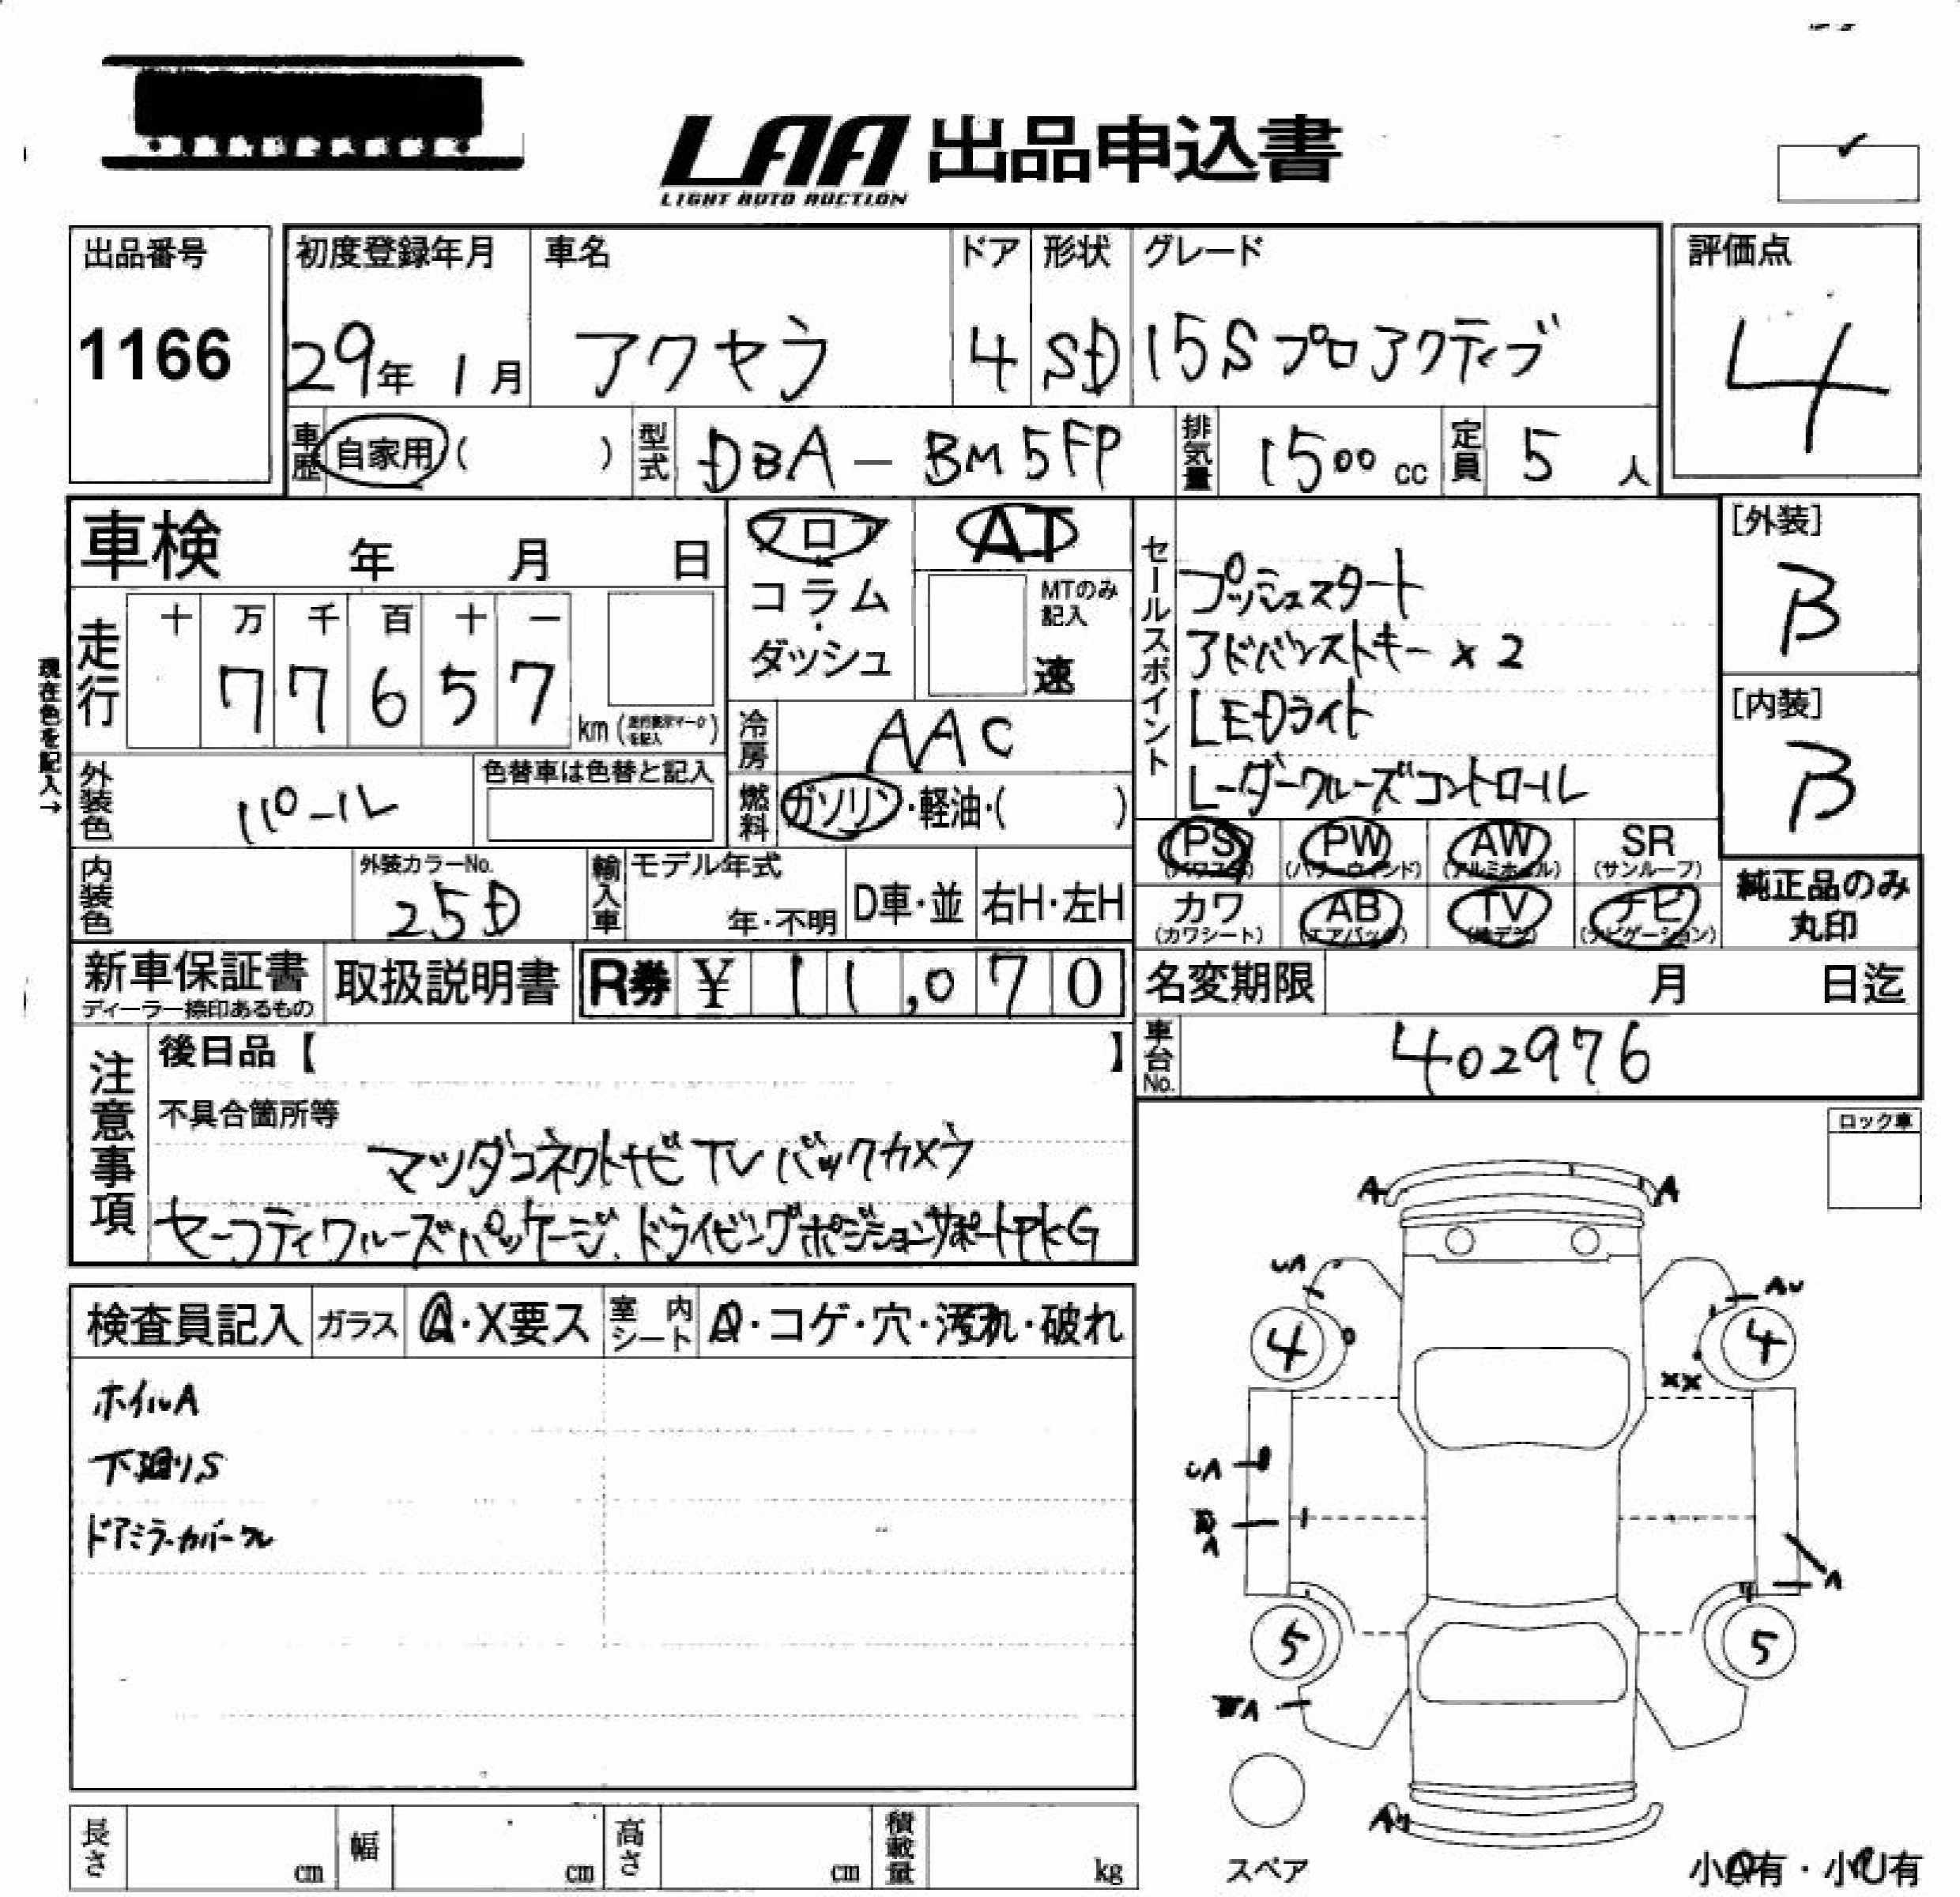 LAA 出品申込書
LIGHT AUTO AUCTION
出品番号
1166
初度登録年月
29年 1月
車名
アクセラ
ドア
4
形状
SD
グレード
15S プロアクティブ
評価点
4
車歴 自家用 ( )
型式 DBA - BM5FP
排気量 1500 cc
定員 5 人
車検 年 月 日
フロア
コラム
・
ダッシュ
AT
MTのみ
記入
速
セールスポイント
プッシュスタート
アドバンストキー×2
LEDライト
レーダークルーズコントロール
[外装]
B
[内装]
B
現在色を記入→
走行
十 万 千 百 十 一
7 7 6 5 7
km
冷房 AAC
外装色 パール
色替車は色替と記入
燃料 ガソリン・軽油・( )
PS PW AW SR
(パワステ) (パワーウィンド) (アルミホイル) (サンルーフ)
カワ AB TV ナビ
(カワシート) (エアバック) (地デジ) (ナビゲーション)
純正品のみ
丸印
内装色
外装カラーNo.
25D
輸入車
モデル年式
年・不明
D車・並
右H・左H
新車保証書
ディーラー捺印あるもの
取扱説明書
R券 ¥ 11,070
名変期限 月 日迄
車台No. 402976
注意事項
後日品【 】
不具合箇所等
マツダコネクトナビ TV バックカメラ
セーフティクルーズパッケージ、ドライビングポジションサポートPKG
ロック車
検査員記入
ガラス A・X要ス
室内シート A・コゲ・穴・汚れ・破れ
ホイルA
下廻りS
ドアミラーカバークレ
A A
UA AU
4 4
XX
UA
A
A
5 5
A
スペア
長さ cm
幅 cm
高さ cm
積載量 kg
小A有・小U有